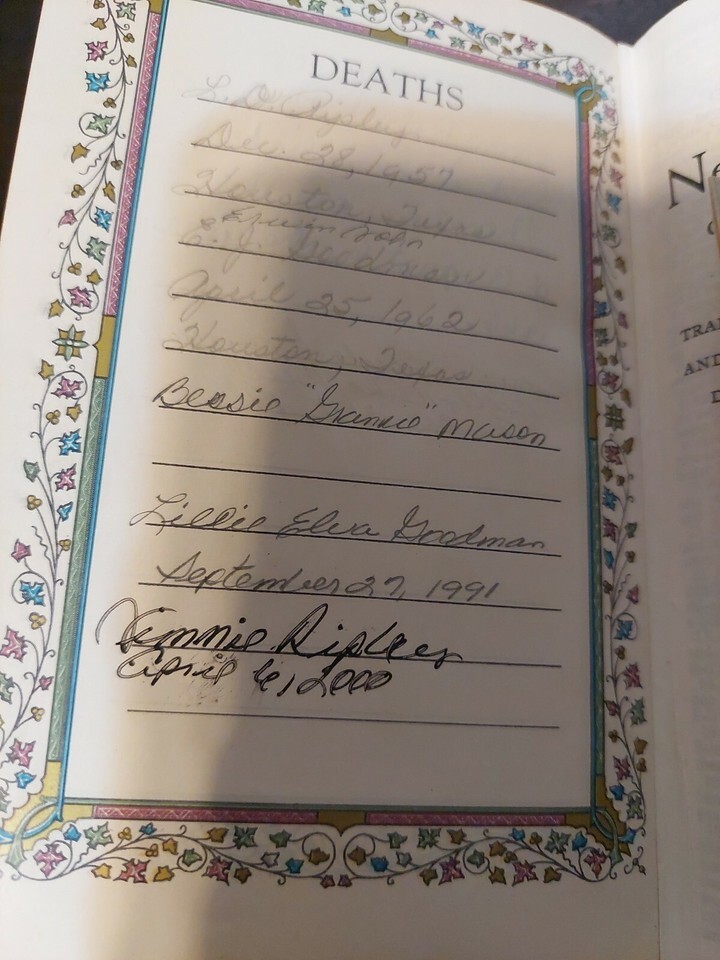 DEATHS
L. D. Ripley
Dec. 28, 1957
Houston, Texas
Erwin John
E. J. Goodman
April 25, 1962
Houston, Texas
Bessie "Grannie" Mason
Lillie Elva Goodman
September 27, 1991
Ripley
April 6, 2000
TRA
AND